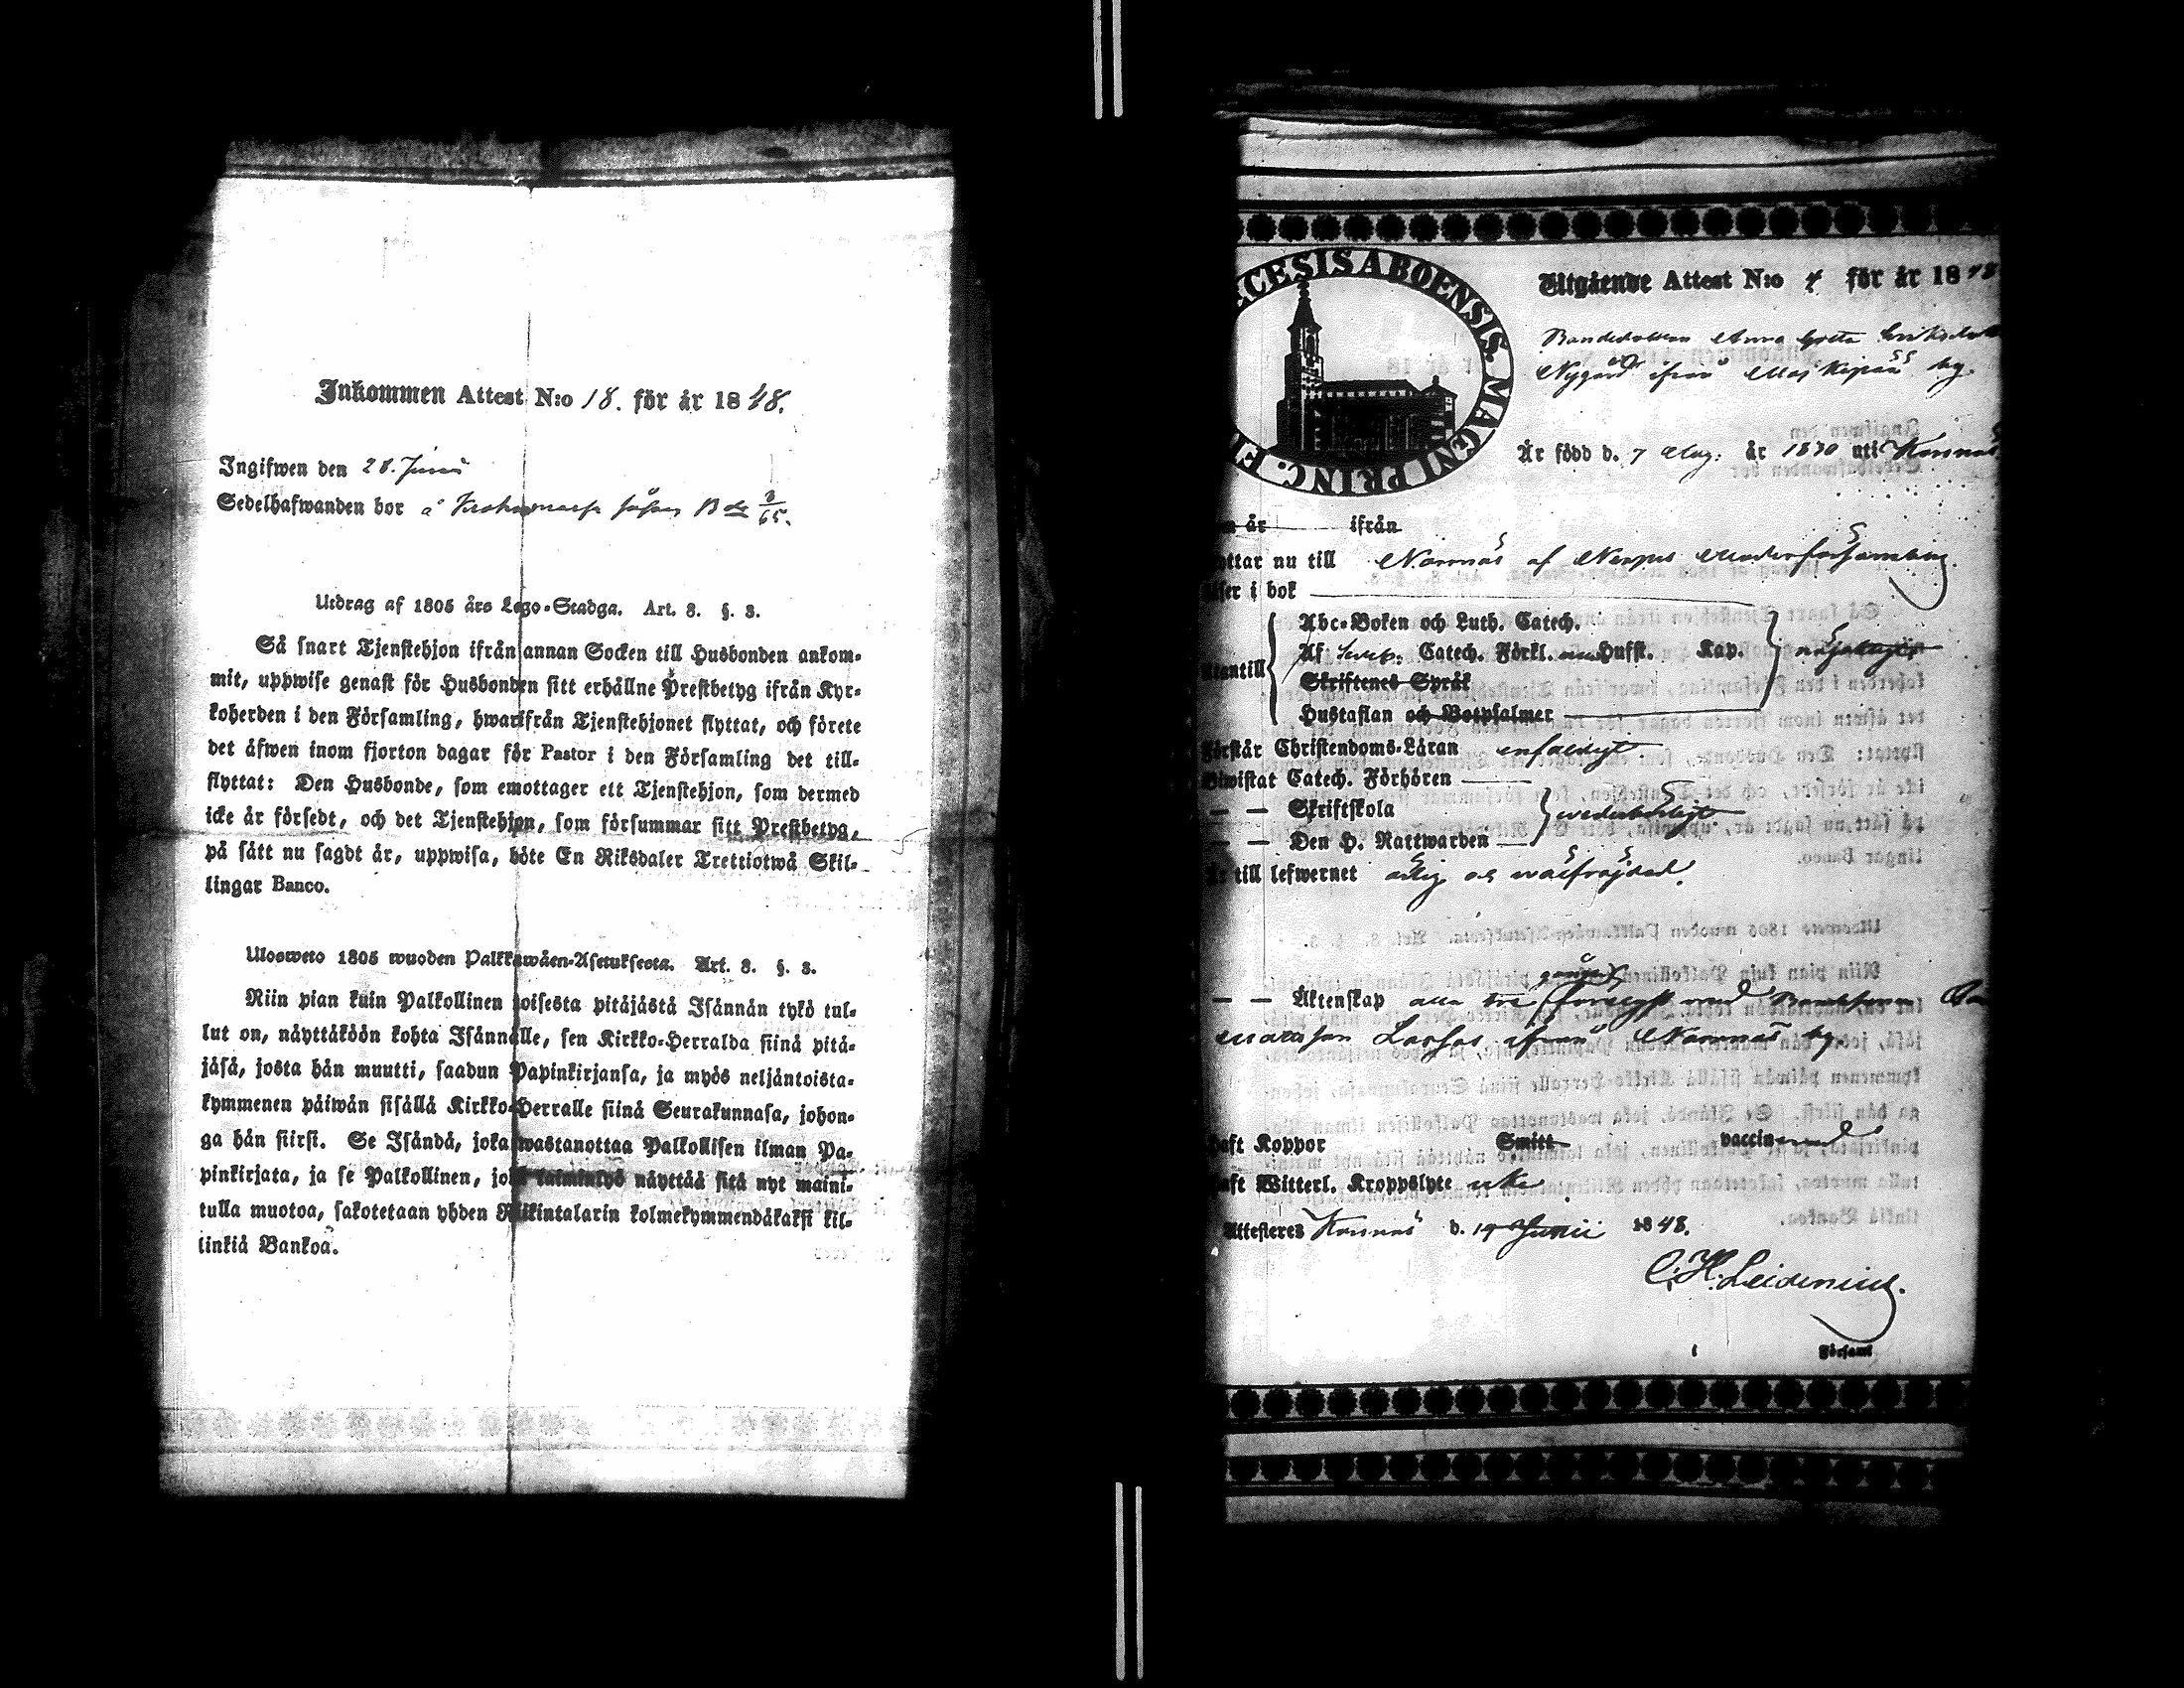 Inkommen Attest N:o 18. för år 1848.
Ingifwen den 28. Junii
Sedelhafwanden bor å
Utdrag af 1805 års Lego-Stadga. Art. 8. §. 3.
Så snart Tjenstehjon ifrån annan Socken till Husbonden ankom-
mit, uppwise genast för Husbonden sitt erhållne Prestbetyg ifrån Kyr-
koherden i den Församling, hwarifrån Tjenstehjonet flyttat, och förete
det äfwen inom fjorton dagar för Pastor i den Församling det till-
flyttat: Den Husbonde, som emottager ett Tjenstehjon, som dermed
icke är försedt, och det Tjenstehjon, som försummar sitt Prestbetyg,
på sätt nu sagdt är, uppwisa, böte En Riksdaler Trettiotwå Skil-
lingar Banco.
Ulosweto 1805 wuoden Palkkawäen-Asetuksesta. Art. 8. §. 3.
Niin pian kuin Palkollinen toisesta pitäjästä Isännän tykö tul-
lut on, näyttäköön kohta Isännälle, sen Kirkko-Herralda siinä pitä-
jäsä, josta hän muutti, saadun Papinkirjansa, ja myös neljäntoista-
kymmenen päiwän sisällä Kirkko-Herralle siinä Seurakunnasa, johon-
ga hän siirsi. Se Isändä, joka wastanottaa Palkollisen ilman Pa-
pinkirjata, ja se Palkollinen, joka laimintyö näyttää sitä nyt maini-
tulla muotoa, sakotetaan yhden Riikintalarin kolmekymmendäkaksi kil-
linkiä Bankoa.
CESIS ABOENSIS. MAGNI PRINC. FI
Utgående Attest N:o 4 för år 1848
Bondedottren Anna Greta Eriksdot
Nygård ifrån by.
Är född d. 7 Aug: år 1830 uti Korsnäs
år ifrån
ttar nu till Nämnäs af Nerpes Moderförsamling.
äser i bok
Abc-Boken och Luth. Catech.
Af Swep. Catech. Förkl. Hufst. Kap.
Utantill
Skriftenes Språk
Hustaflan och Botpsalmer
Förstår Christendoms-Läran enfaldigt
Biwistat Catech. Förhören
— — Skriftskola wederbörligt
— — Den H. Nattwarden
Är till lefwernet ärlig och wälfräjdad.
— — Äktenskap alla tre gånger med Bondesonen
Mattsson ifrån Nämnäs by.
Haft Koppor Smitt vaccin
Haft Witterl. Kroppslyte icke
Attesteres Korsnäs d. 19 Junii 1848.
C. H. Leidenius.
i Församl